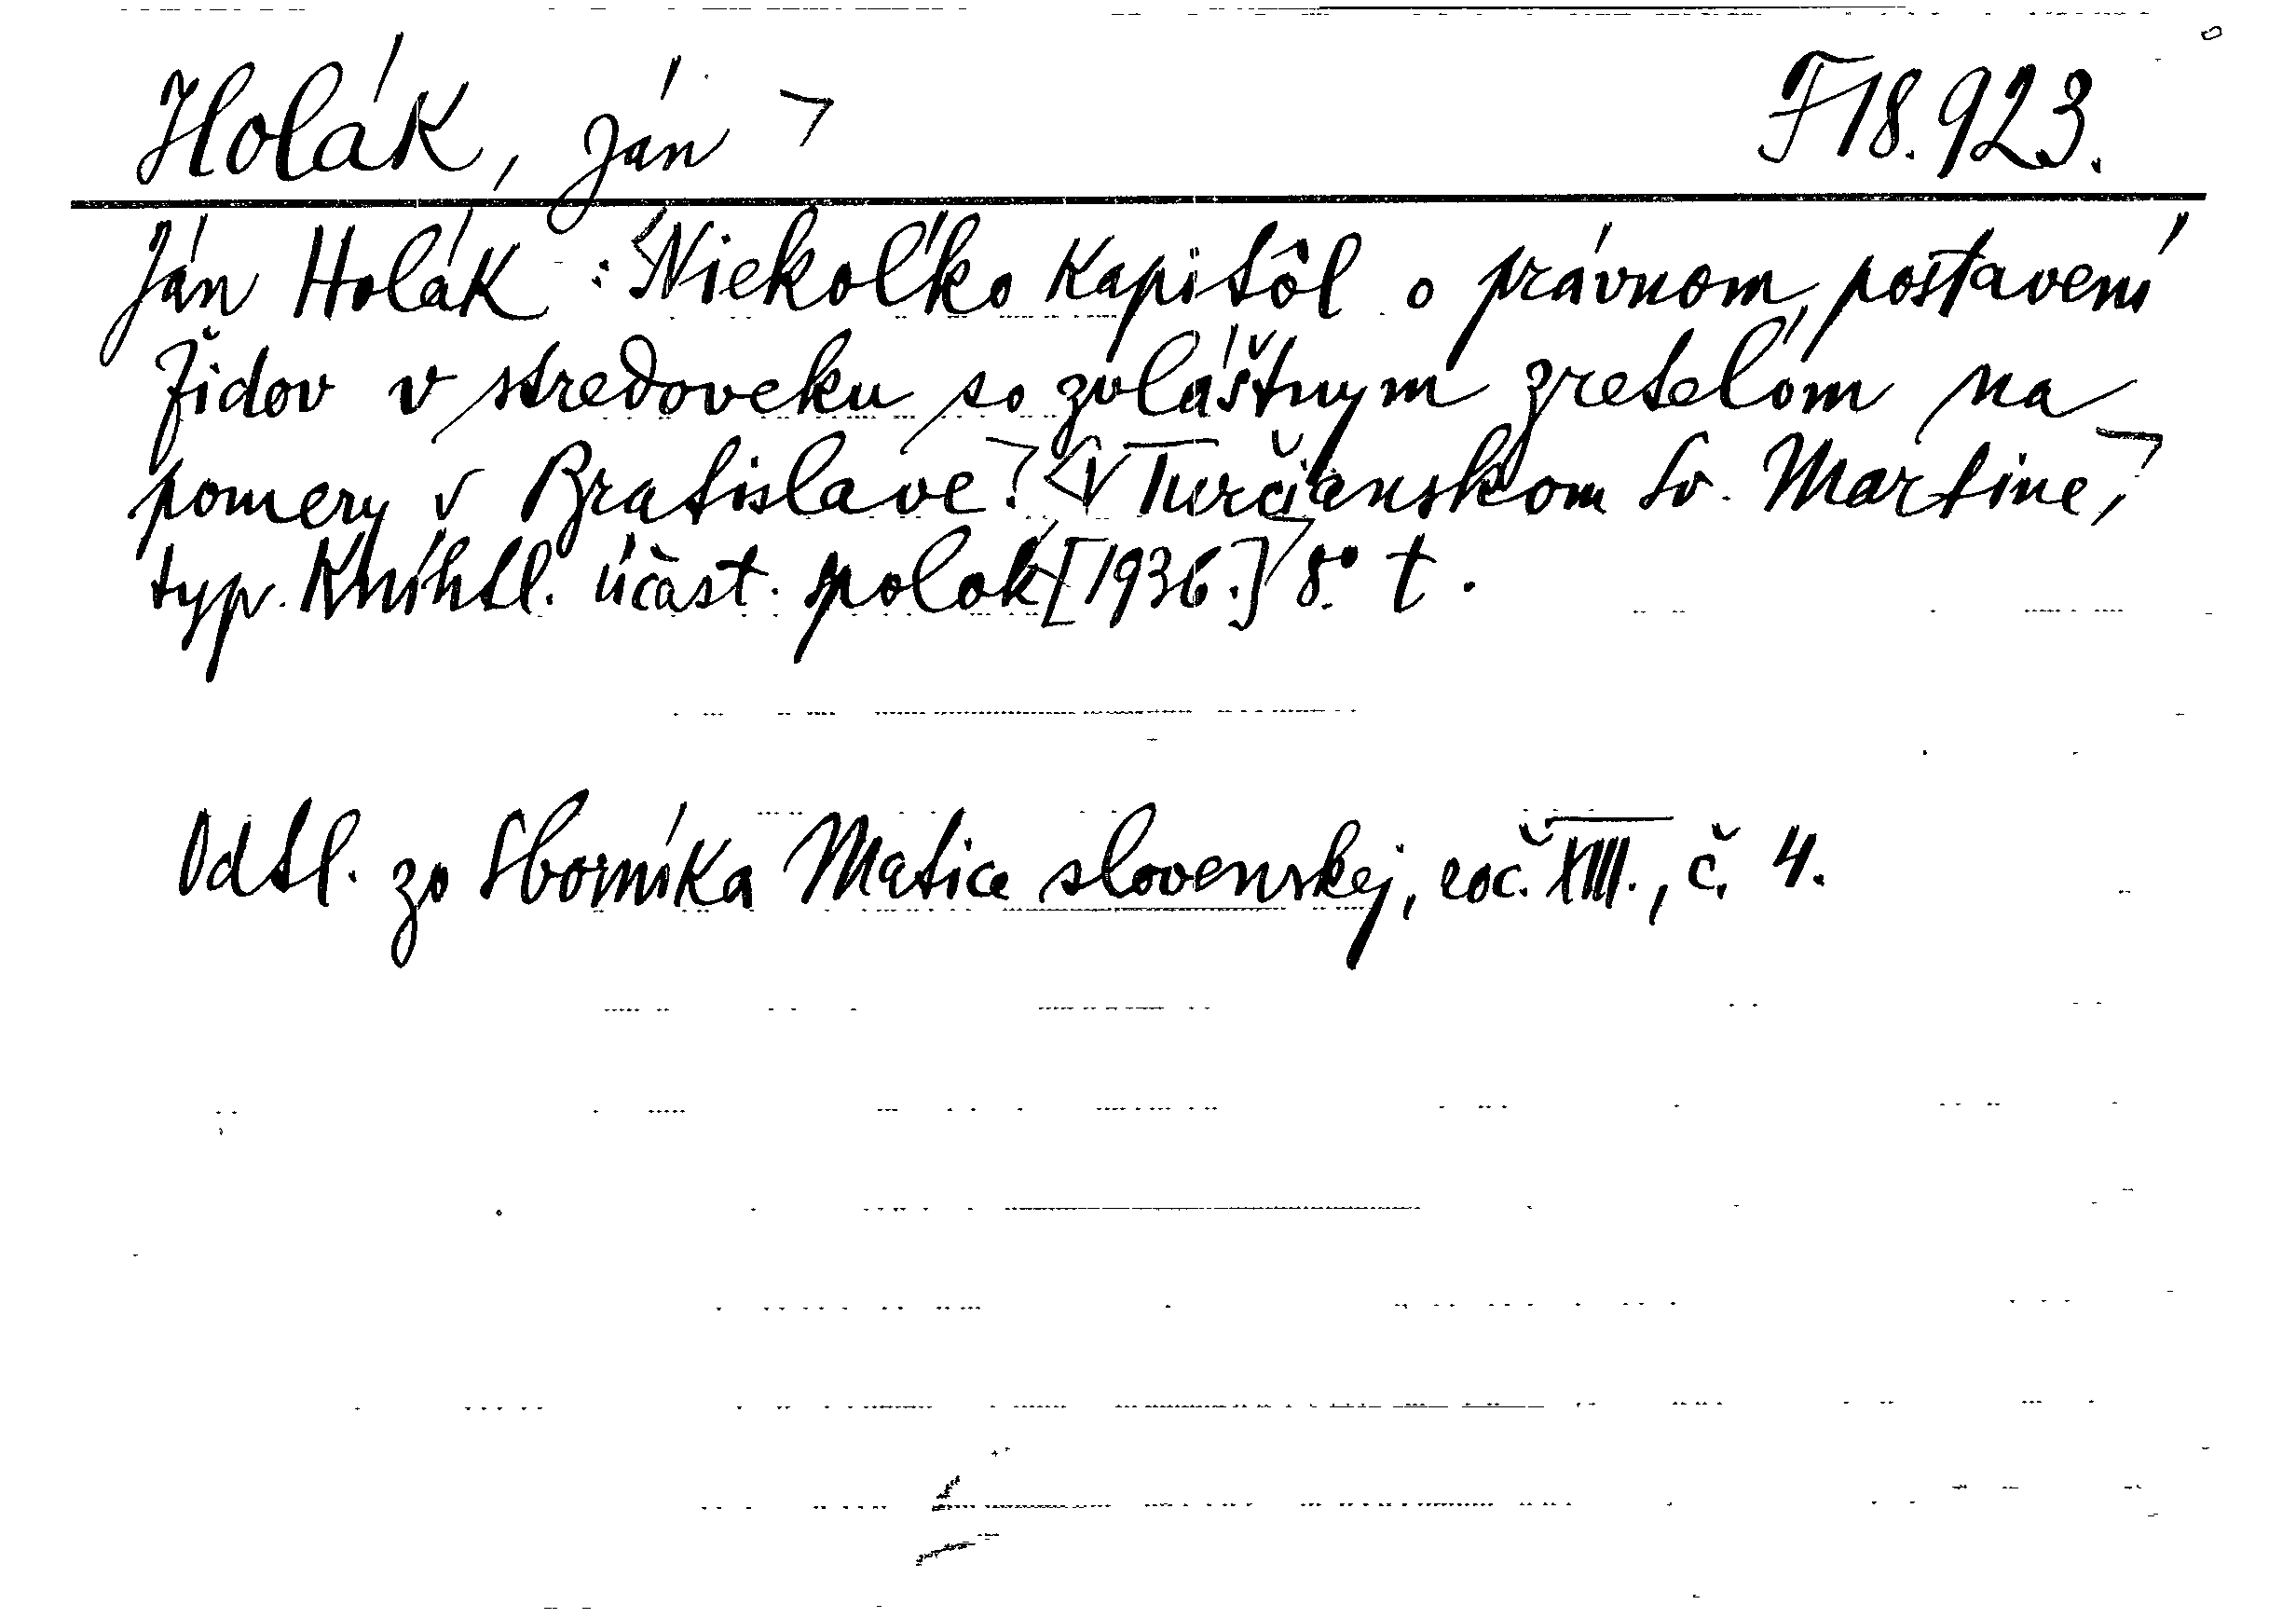 Holák, Ján
F 18.923.
Ján Holák: Niekoľko kapitôl o právnom postavení
židov v stredoveku so zvláštnym zreteľom na
pomery v Bratislave. V Turčianskom Sv. Martine,
typ. Kníhtl. účast. spolok [1936.] 8.° t.
Odtl. zo Sborníka Matice slovenskej, roč. XIII., č. 4.